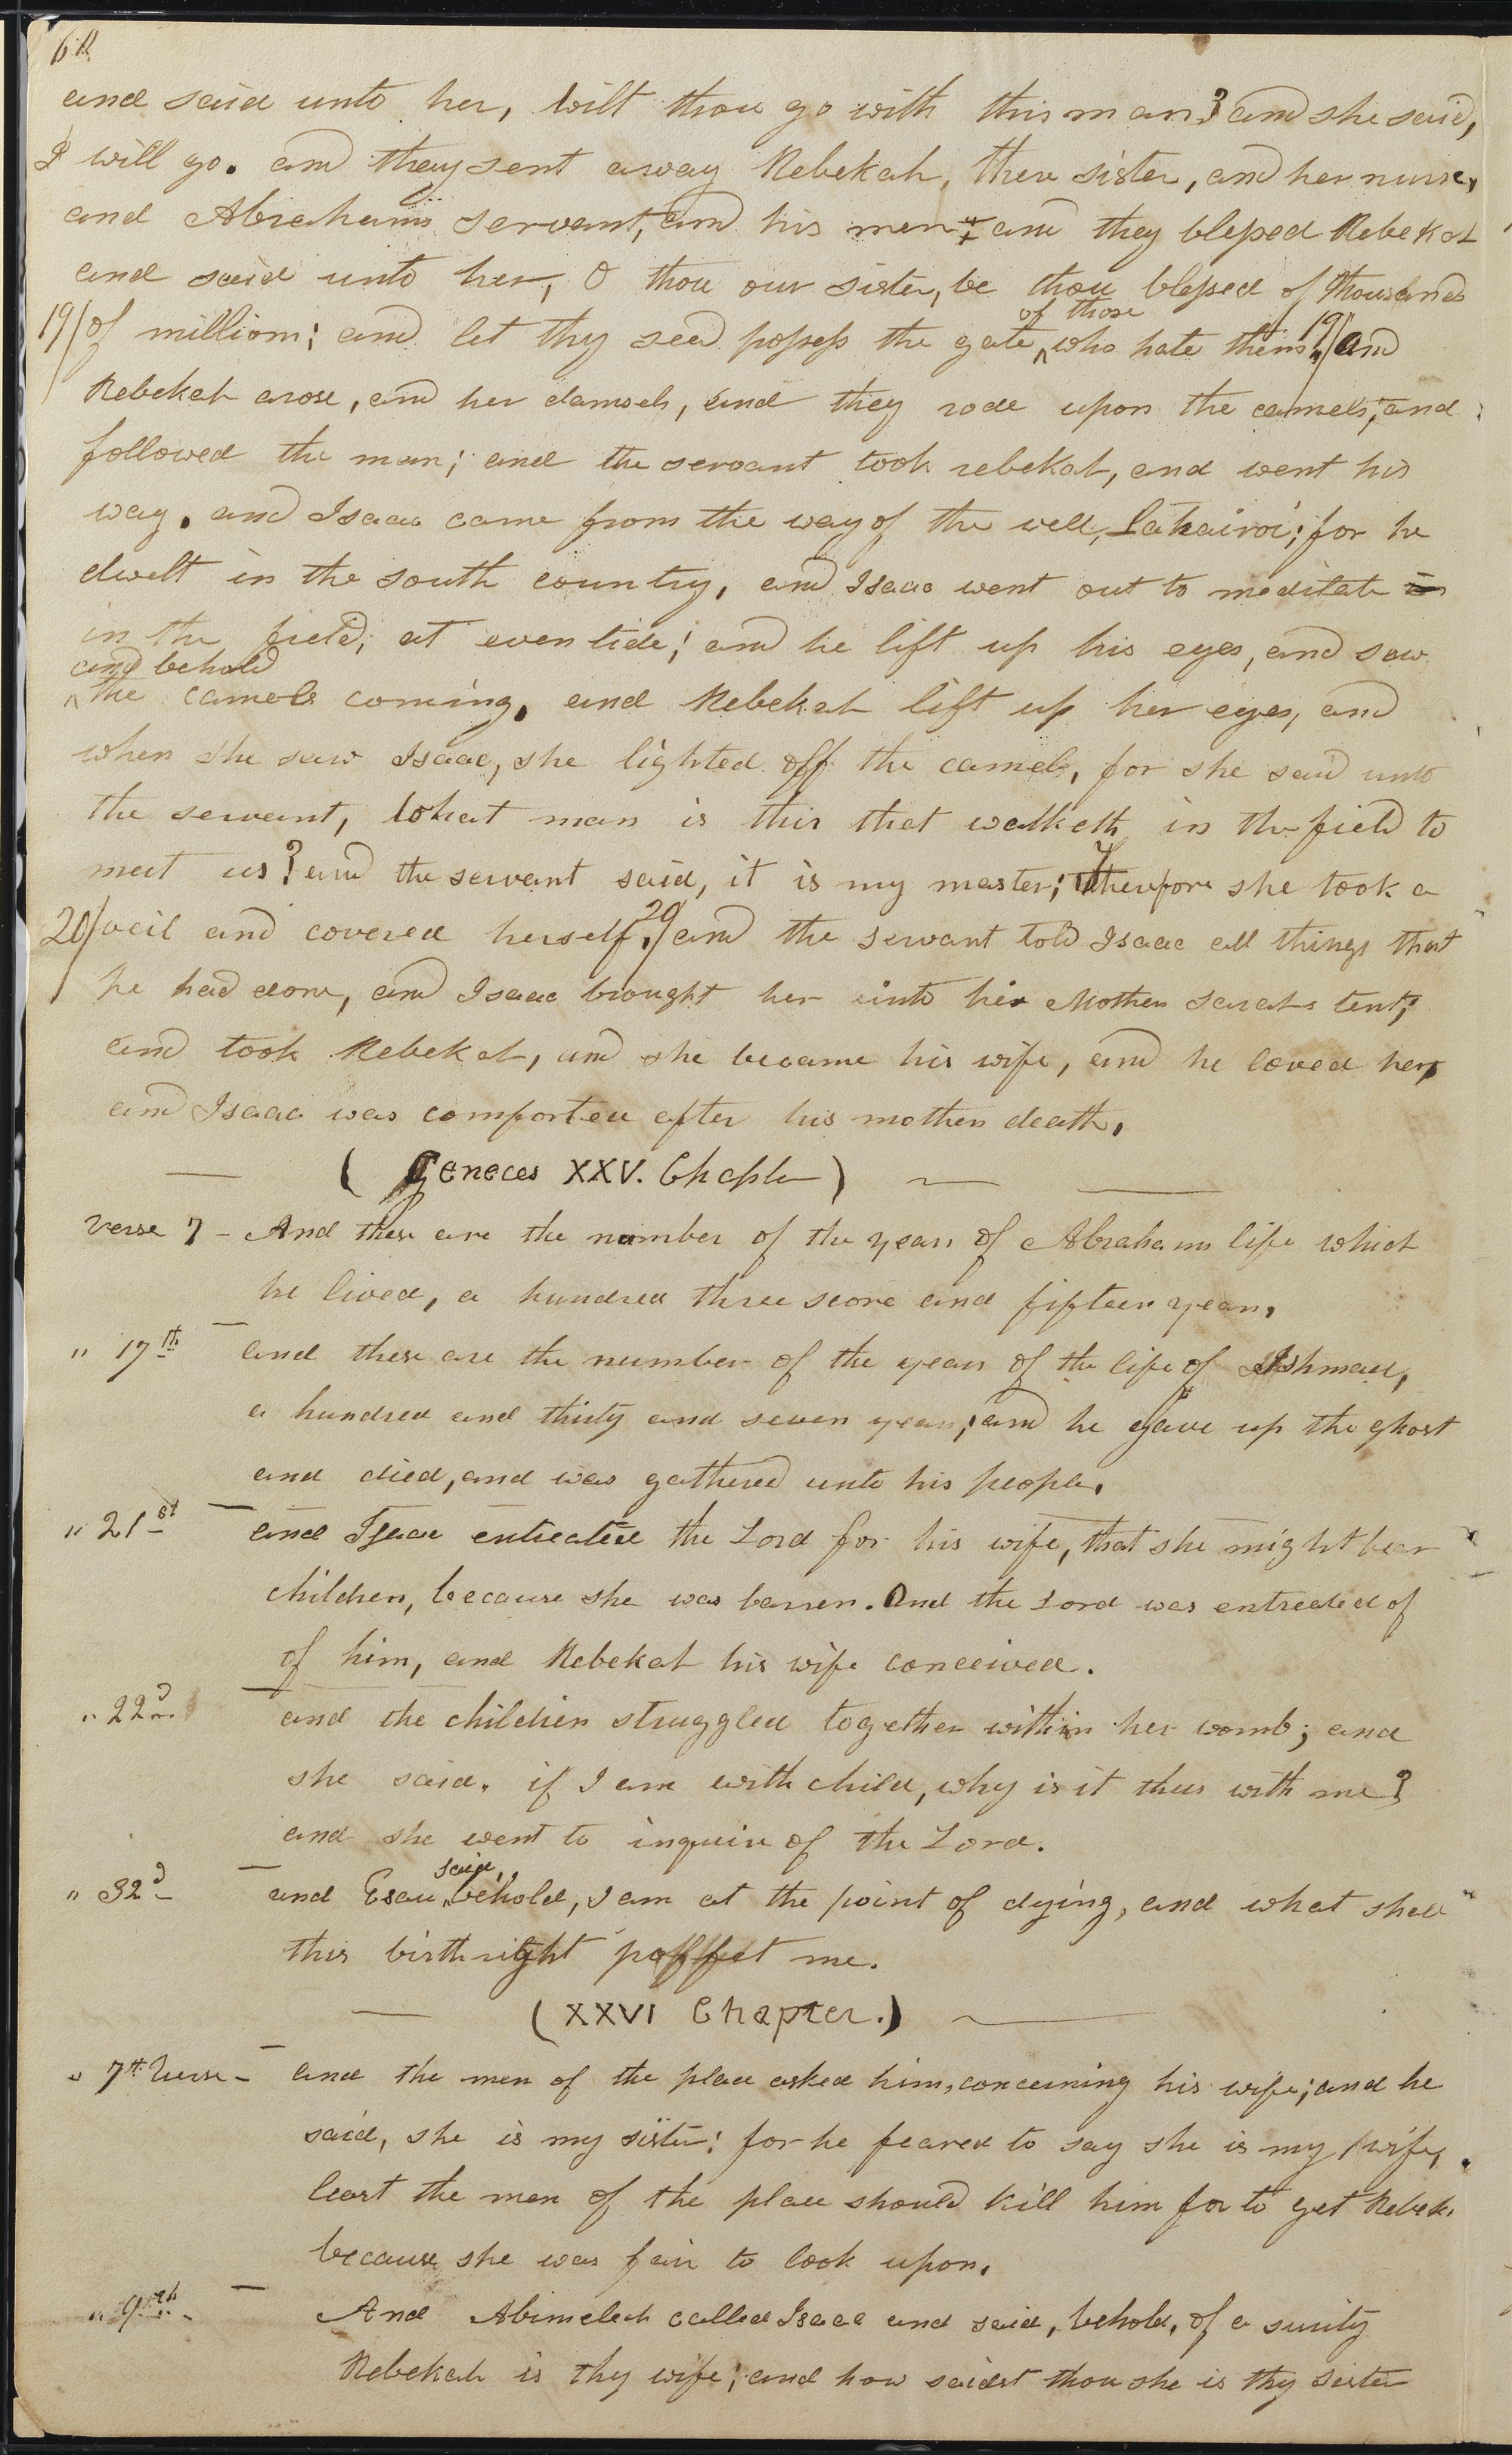 60
and said unto her, wilt thou go with this man? and she said,
I will go. and they sent away Rebekah, there sister, and her nurse,
and Abrahams servant, and his men; and they blessed Rebekah
and said unto her, O thou our sister, be thou blessed of thousands
of those
19/ of millions; and let thy seed possess the gate ^ who hate them. 19/ and
Rebekah arose, and her damsels, and they rode upon the camels; and
followed the man; and the servant took rebekah, and went his
way. and Isaac came from the way of the well, Lahairoi; for he
dwelt in the south country, and Isaac went out to meditate in
in the field, at eventide; and he lift up his eyes, and saw
and behold
^ the camels coming. and Rebekah lift up her eyes, and
when she saw Isaac, she lighted off the camel, for she said unto
the servant, What man is this that walketh in the field to
meet us? and the servant said, it is my master; therefore she took a
20/ veil and covered herself. 20/ and the servant told Isaac all things that
he had done, and Isaac brought her into his Mother Sarahs tent;
and took Rebekah, and she became his wife, and he loved her,
and Isaac was comforted after his mothers death.
( Geneces XXV. Chapter )
verse 7 - And these are the number of the years of Abrahams life which
he lived, a hundred three score and fifteen years.
" 17th and these are the number of the years of the life of Ishmael,
a hundred and thirty and seven years; and he gave up the ghost
and died, and was gathered unto his people.
" 21st and Isaac entreated the Lord for his wife, that she might bear
children, because she was barren. And the Lord was entreated of
of him, and Rebekah his wife conceived.
" 22d and the children struggled together within her womb; and
she said. if I am with child, why is it thus with me?
and she went to inquire of the Lord.
said,
" 32d and Esau ^ behold, I am at the point of dying, and what shall
this birthright proffet me.
(XXVI Chapter.)
" 7th Verse - and the men of the place asked him, concerning his wife; and he
said, she is my sister: for he feared to say she is my wife,
least the men of the place should kill him for to get Rebek.
because she was fair to look upon.
" 9th - And Abimelech called Isaac and said, behold, of a surity
Rebekah is thy wife; and how saidst thou she is thy sister